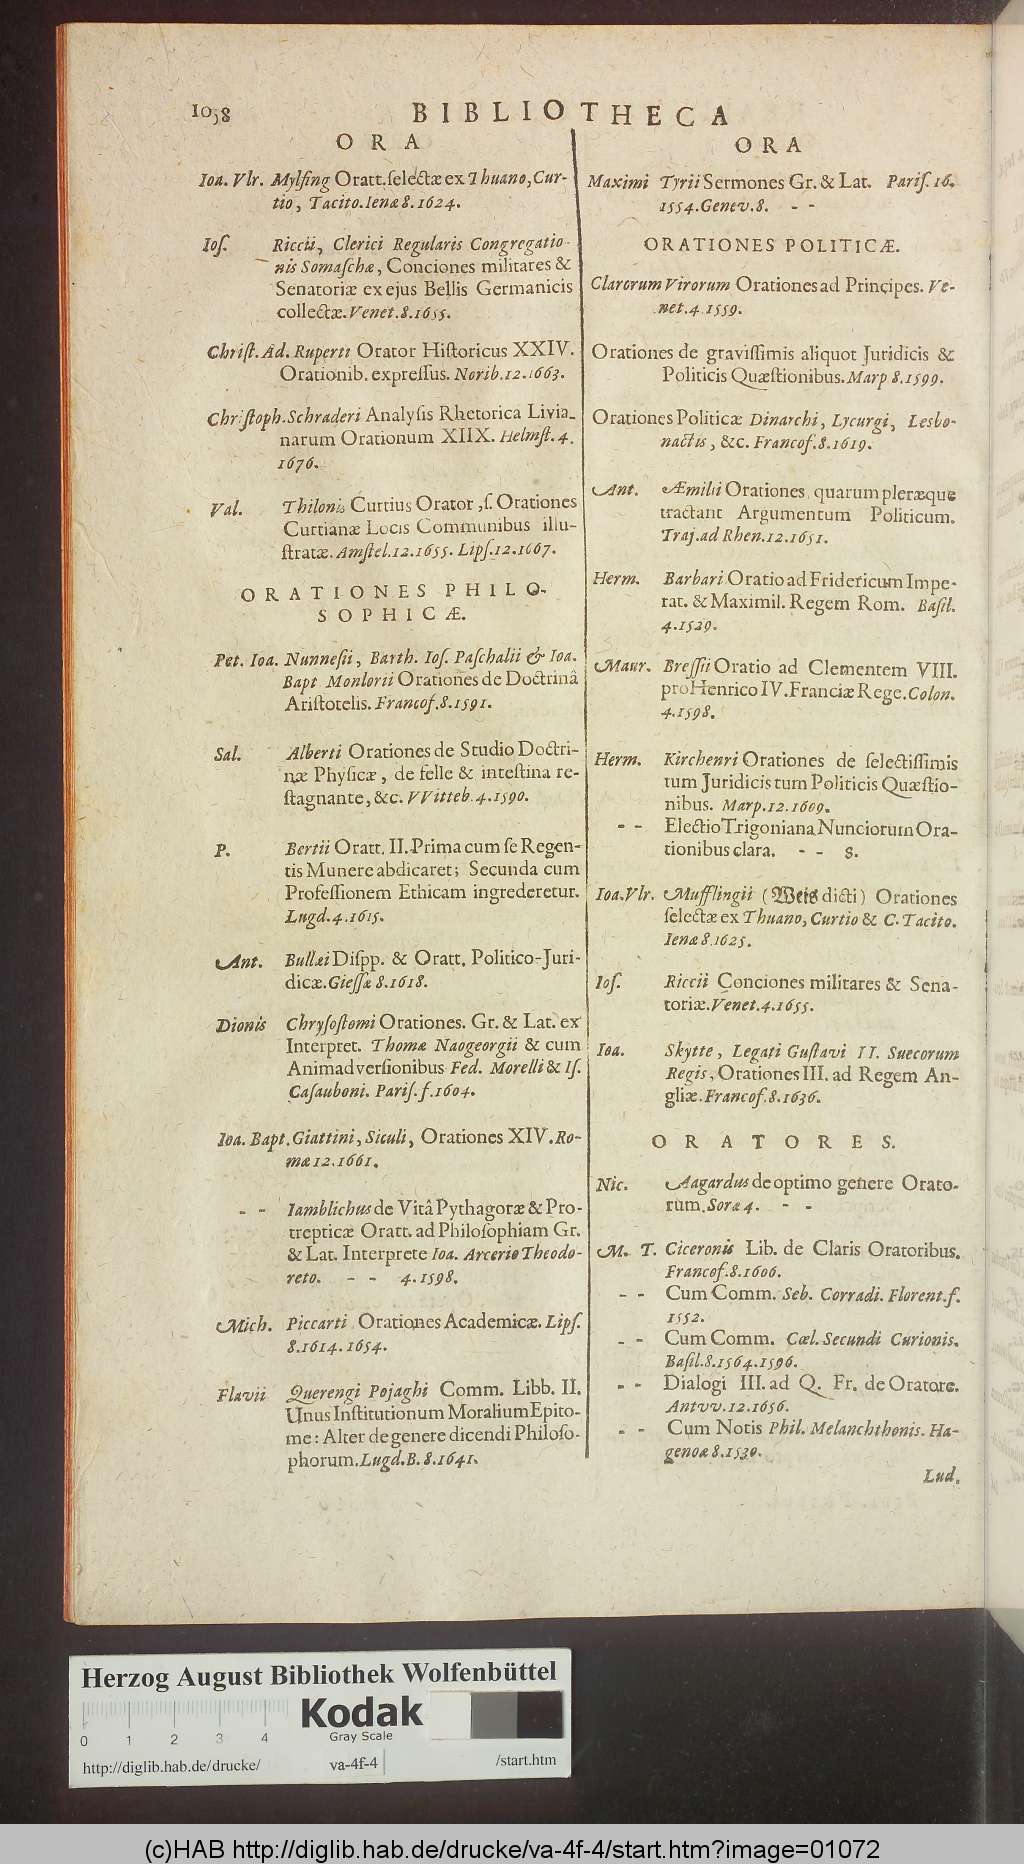 1058
BIBLIOTHECA
ORA
Ioa. Vlr. Mylſing Oratt. ſelectæ ex Thuano, Cur-
tio, Tacito. Ienæ 8. 1624.
Ioſ. Riccii, Clerici Regularis Congregatio-
nis Somaſchæ, Conciones militares &
Senatoriæ ex ejus Bellis Germanicis
collectæ. Venet. 8. 1655.
Chriſt. Ad. Ruperti Orator Hiſtoricus XXIV.
Orationib. expreſſus. Norib. 12. 1663.
Chriſtoph. Schraderi Analyſis Rhetorica Livia-
narum Orationum XIIX. Helmſt. 4.
1676.
Val. Thilonis Curtius Orator, ſ. Orationes
Curtianæ Locis Communibus illu-
ſtratæ. Amſtel. 12. 1655. Lipſ. 12. 1667.
ORATIONES PHILO-
SOPHICÆ.
Pet. Ioa. Nunneſii, Barth. Ioſ. Paſchalii & Ioa.
Bapt Monlorii Orationes de Doctrinâ
Ariſtotelis. Francof. 8. 1591.
Sal. Alberti Orationes de Studio Doctri-
næ Phyſicæ, de felle & inteſtina re-
ſtagnante, &c. VVitteb. 4. 1590.
P. Bertii Oratt. II. Prima cum ſe Regen-
tis Munere abdicaret; Secunda cum
Profeſſionem Ethicam ingrederetur.
Lugd. 4. 1615.
Ant. Bullæi Diſpp. & Oratt. Politico-Juri-
dicæ. Gieſſæ 8. 1618.
Dionis Chryſoſtomi Orationes. Gr. & Lat. ex
Interpret. Thomæ Naogeorgii & cum
Animadverſionibus Fed. Morelli & Iſ.
Caſauboni. Pariſ. f. 1604.
Ioa. Bapt. Giattini, Siculi, Orationes XIV. Ro-
mæ 12. 1661.
- - Iamblichus de Vitâ Pythagoræ & Pro-
trepticæ Oratt. ad Philoſophiam Gr.
& Lat. Interprete Ioa. Arcerio Theodo-
reto. - - 4. 1598.
Mich. Piccarti Orationes Academicæ. Lipſ.
8. 1614. 1654.
Flavii Querengi Pojaghi Comm. Libb. II.
Unus Inſtitutionum Moralium Epito-
me: Alter de genere dicendi Philoſo-
phorum. Lugd. B. 8. 1641.
ORA
Maximi Tyrii Sermones Gr. & Lat. Pariſ. 16.
1554. Genev. 8. - -
ORATIONES POLITICÆ.
Clarorum Virorum Orationes ad Principes. Ve-
net. 4. 1559.
Orationes de graviſſimis aliquot Juridicis &
Politicis Quæſtionibus. Marp 8. 1599.
Orationes Politicæ Dinarchi, Lycurgi, Lesbo-
nactis, &c. Francof. 8. 1619.
Ant. Æmilii Orationes, quarum pleræque
tractant Argumentum Politicum.
Traj. ad Rhen. 12. 1651.
Herm. Barbari Oratio ad Fridericum Impe-
rat. & Maximil. Regem Rom. Baſil.
4. 1529.
Maur. Breſſii Oratio ad Clementem VIII.
pro Henrico IV. Franciæ Rege. Colon.
4. 1598.
Herm. Kirchenri Orationes de ſelectiſſimis
tum Juridicis tum Politicis Quæſtio-
nibus. Marp. 12. 1609.
- - Electio Trigoniana Nunciorum Ora-
tionibus clara. - - 8.
Ioa. Vlr. Mufflingii (Weis dicti) Orationes
ſelectæ ex Thuano, Curtio & C. Tacito.
Ienæ 8. 1625.
Ioſ. Riccii Conciones militares & Sena-
toriæ. Venet. 4. 1655.
Ioa. Skytte, Legati Guſtavi II. Suecorum
Regis, Orationes III. ad Regem An-
gliæ. Francof. 8. 1636.
ORATORES.
Nic. Aagardus de optimo genere Orato-
rum. Soræ 4. - -
M. T. Ciceronis Lib. de Claris Oratoribus.
Francof. 8. 1606.
- - Cum Comm. Seb. Corradi. Florent. f.
1552.
- - Cum Comm. Cæl. Secundi Curionis.
Baſil. 8. 1564. 1596.
- - Dialogi III. ad Q. Fr. de Oratore.
Antvv. 12. 1656.
- - Cum Notis Phil. Melanchthonis. Ha-
genoæ 8. 1530.
Lud.
Herzog August Bibliothek Wolfenbüttel
Kodak
Gray Scale
0 1 2 3 4
http://diglib.hab.de/drucke/ va-4f-4 /start.htm
(c)HAB http://diglib.hab.de/drucke/va-4f-4/start.htm?image=01072